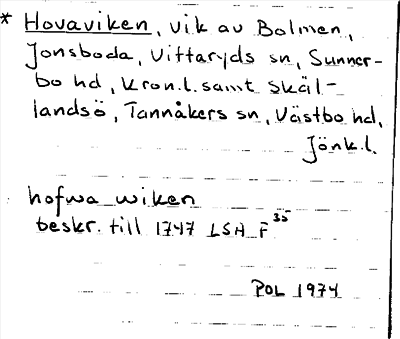 * Hovaviken, vik av Bolmen,
Jonsboda, Vittaryds sn, Sunner-
bo hd, Kron.l. samt Skäl-
landsö, Tannåkers sn, Västbo hd,
Jönk.l.
hofwa wiken
beskr. till 1747 LSA F 35
POL 1974